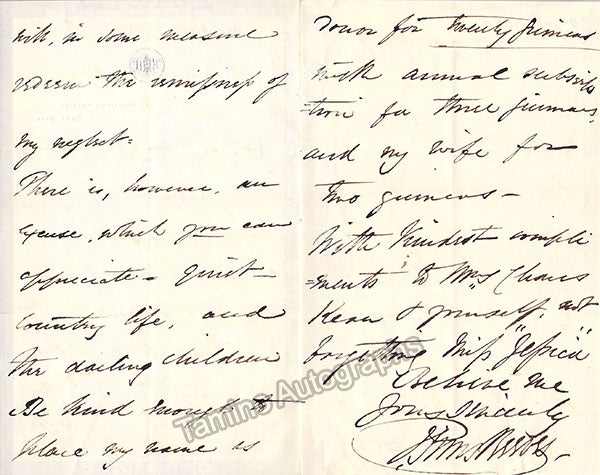 will, in some measure
redeem the remissness of
my neglect =
There is, however, an
excuse, which you can
appreciate - quiet
country life, and
the darling children
Be kind enough to
place my name as
Donor for twenty guineas
with annual subscrip
=tion for three guineas,
and my wife for
two guineas -
With kindest compli
=ments to Mrs Charles
Kean & yourself, not
forgetting Miss "Jessica"
Believe me
Yours Sincerely
J Sims Reeves -
Tamino Autographs